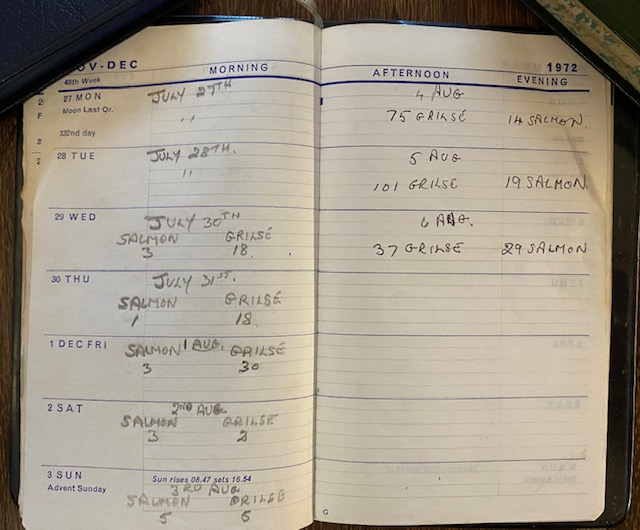 NOV-DEC MORNING
48th Week
27 MON JULY 27TH
Moon Last Qr. ''
332nd day
28 TUE JULY 28TH.
''
29 WED JULY 30TH
SALMON GRILSE
3 18.
30 THU JULY 31ST.
SALMON GRILSE
1 18.
1 DEC FRI 1 AUG.
SALMON GRILSE
3 30
2 SAT 2ND AUG.
SALMON GRILSE
3 2
3 SUN Sun rises 08.47 sets 16.54
Advent Sunday 3RD AUG
SALMON GRILSE
5 5
1972
AFTERNOON EVENING
4 AUG
75 GRILSE 14 SALMON.
5 AUG
101 GRILSE 19 SALMON.
6 AUG.
37 GRILSE 29 SALMON
G